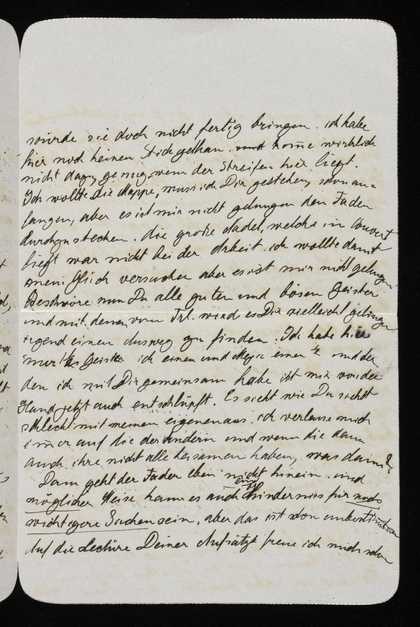 würde sie doch nicht fertig bringen. ich habe
hier noch keinen Stich gethan. und komme wirklich
nicht dazu, genug, wenn der Streifen hier liegt.
Ich wollte die Klappe, muss ich Dir gestehen, schon an-
fangen, aber es ist mir nicht gelungen den Faden
durchzustechen. die große Nadel, welche im Couvert
liegt war nicht bei der Arbeit ich wollte damit
mein Glück versuchen aber es ist mir nicht gelungen
Beschwöre nun Du alle guten und bösen Geister
und mit denen vom Frl. wird es Dir vielleicht gelingen
irgend einen Ausweg zu finden. Ich habe hier
nur Geister ich einen und diese einen und der
den ich mit Dir gemeinsam habe ist mir von der
Hand jetzt auch entschlüpft. Es sieht wie Du siehst
schlecht mit meinen eigenen aus. ich verlasse mich
immer auf die der Andern und wenn die dann
auch ihre nicht alle beisammen haben, was dann?
Dann geht der Faden eben nicht hinein. und
möglicher Weise kann es auch ein Hinderniss für noch
wichtigere Sachen sein, aber das ist schon
Auf die Lectüre Deiner Aufsätze freue ich mich schon